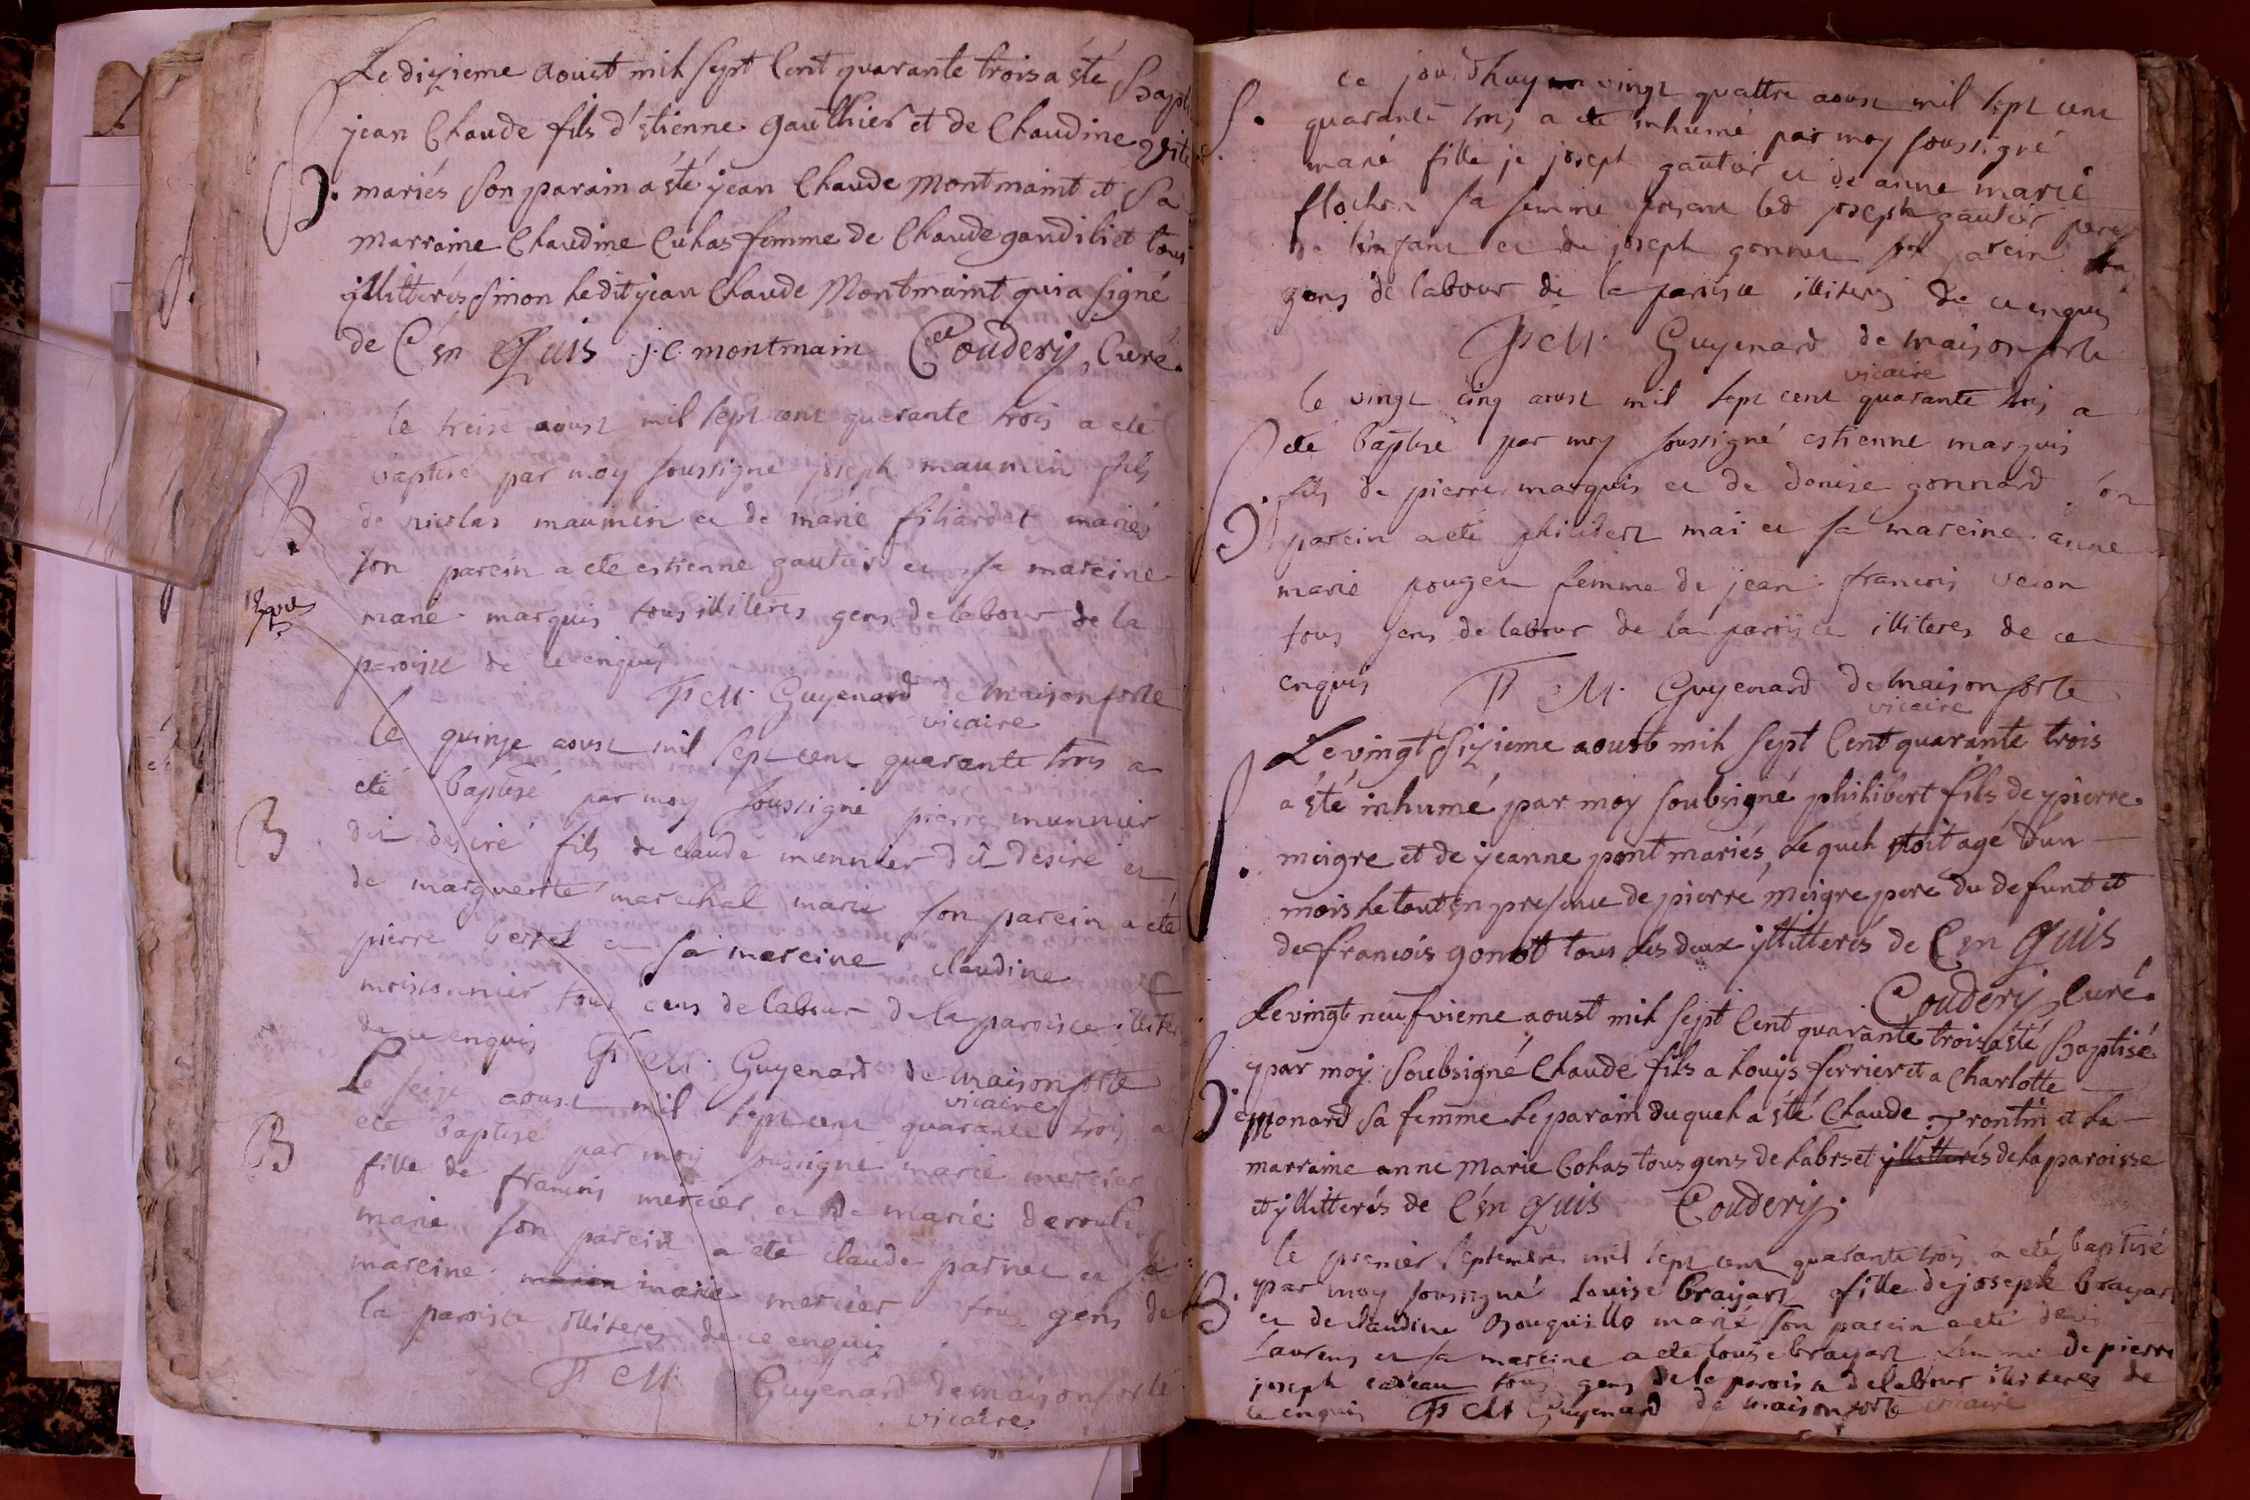 Le dizieme aoust mil sept Cent quarante trois a été Bapt
jean Claude fils d'Etienne gaulthier et de Claudine
B. mariés son parain a été jean Claude Montmaint et Sa
Marraine Claudine Cuhas femme de Claude gandiliet tous
yllitterés sinon le dit jean Claude Montmaint qui a signé
de C'én Quis j. C. montmain Couderij, Curé.
le treise aoust mil sept cent quarante trois a eté
baptisé par moy soussigné joseph maumein fils
B. de nicolas maumein et de marie filiardet mariés
son parein a ete estienne gautier et sa mareine
marie marquis tous illiteres gens de labour de la
paroisse de ce enquis
F M. Guyenard de maisonforte
vicaire
le quinze aoust mil sept cent quarante trois a
eté baptisé par moy soussigné pierre munnier
B dit desiré fils de claude munnier dit desiré et
de marguerite marechal marié son parein a eté
pierre et sa mareine claudine
moissonnier tous gens de labour de la paroisse illiter
de ce enquis F M. Guyenard de maisonforte
vicaire
Le seize aoust mil sept cent quarante trois a
B eté baptisé par moy soussigné marie mercier
fille de francois mercier et de marie
marié son parein a ete claude parnet et sa
mareine marie mercier tous gens de
la paroisse illiteres de ce enquis
F M. Guyenard de maisonforte
vicaire
S. ce jourdhuy vingt quattre aoust mil sept cent
quarante trois a eté inhumé par moy soussigné
marie fille je joseph gautier et de anne marie
flochon sa femme present led joseph gautier pere
de l'enfant et de joseph gonnet son parein
gens de labour de la paroisse illiteres de ce enquis
F M. Guyenard de maisonforte
vicaire
le vingt cinq aoust mil sept cent quarante trois a
eté baptisé par moy soussigné estienne marquis
B. fils de pierre marquis et de denise gonnard son
parein a eté philibert mai et sa mareine anne
marie pouget femme de jean francois veron
tous gens de labour de la paroisse illiteres de ce
enquis F M. Guyenard de maisonforte
vicaire
Le vingt sizieme aoust mil sept Cent quarante trois
a été inhumé par moy soubsigné philibert fils de pierre
S. meigre et de jeanne pont mariés, lequel etoit agé d'un
mois le tout en presence de pierre meigre pere du defunt et
de francois gonot tous les deux yllitterés de C'en Quis
Couderij, Curé.
Le vingt neufvieme aoust mil sept Cent quarante trois a été Baptisé
par moy soubsigné Claude fils a Louys ferrier et a Charlotte
B. monard sa femme le parain duquel a été Claude Trontin et la
marraine anne Marie Cohas tous gens de labrs et yllitterés de la paroisse
et yllitterés de C'en Quis Couderij.
le premier septembre mil sept cent quarante trois a eté baptisé
B. par moy soussigné Louise brayart fille de joseph brayart
et de Claudine Bouquillo marié son parein a eté denis
Laurens et sa mareine a eté louise brayart femme de pierre
joseph tous gens de la paroisse de labour illiteres de
ce enquis F M Guyenard de maisonforte vicaire